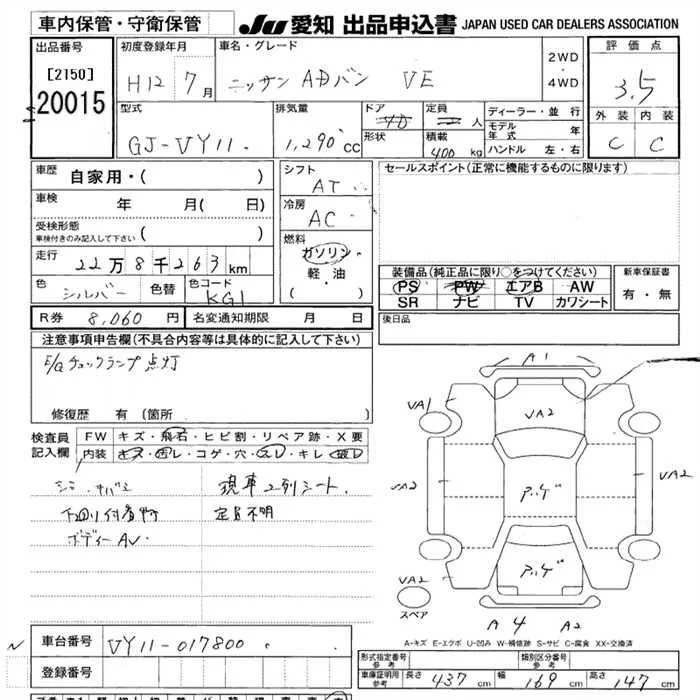 車内保管・守衛保管
JU 愛知 出品申込書 JAPAN USED CAR DEALERS ASSOCIATION
出品番号
[2T50]
20015
初度登録年月
H12 7月
車名・グレード
ニッサン ADバン VE
2WD
・
4WD
評価点
3.5
外装 内装
C C
型式
GJ-VY11
排気量
1,290cc
ドア
形状
定員 人
積載
400 kg
ディーラー・並行
モデル年式 年
ハンドル 左・右
車歴
自家用・( )
車検
年 月( 日)
受検形態
車検付きのみ記入して下さい ( )
走行
22万8千263km
色
シルバー
色替
色コード
KG1
シフト
AT
冷房
AC
燃料
ガソリン
軽・油
( )
セールスポイント(正常に機能するものに限ります)
装備品(純正品に限り○をつけてください)
PS PW エアB AW
SR ナビ TV カワシート
新車保証書
有・無
R券 8,060円
名変通知期限 月 日
後日品
注意事項申告欄(不具合内容等は具体的に記入して下さい)
E/Gチェックランプ点灯
修復歴 有(箇所 )
検査員
記入欄
FW キズ・飛石・ヒビ割・リペア跡・X要
内装 キズ・汚レ・コゲ・穴・スレ・キレ・破レ
現車2列シート
下回り付着
定員不明
ボディーAV
A1
VA1
VA2
VA2
VA2
VA2
スペア
A 4 A2
A-キズ E-エクボ U-凹み W-補修跡 S-サビ C-腐食 XX-交換済
車台番号
VY11-017800
登録番号
型式指定番号
参考
類別区分番号
参考
車庫証明用
参考
長さ 437cm
幅 169cm
高さ 147cm